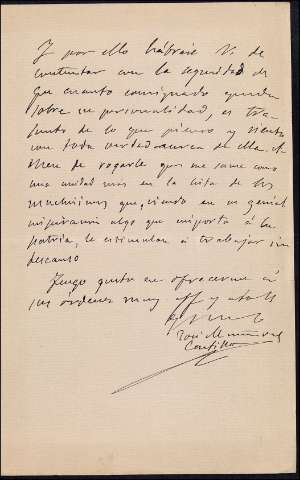 Y por ello habrase V. de
contentar con la seguridad de
que cuanto consignado queda
sobre su personalidad, es tra-
sunto de lo que pienso y siento
con toda verdad acerca de ella. A-
de rogarle que me sume como
una unidad mas en la lista de los
muchisimos que, viendo en su genial
algo que importa á la
patria, le estimulan á trabajar sin
descanso
Tengo gusto en ofrecerme á
sus órdenes muy aff y atto
José
Castillo